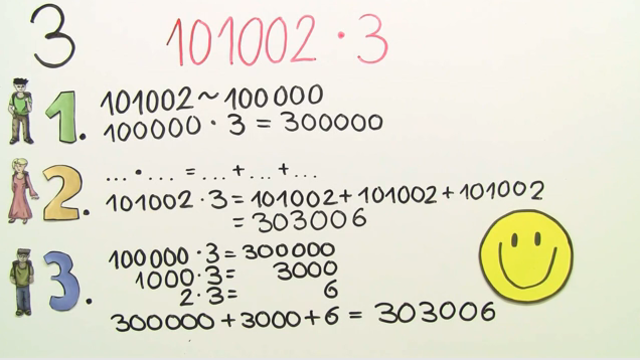 3 101002 · 3
1. 101002 ~ 100000
100000 · 3 = 300000
2. ... · ... = ... + ... + ...
101002 · 3 = 101002 + 101002 + 101002
= 303006
3. 100000 · 3 = 300000
1000 · 3 = 3000
2 · 3 = 6
300000 + 3000 + 6 = 303006